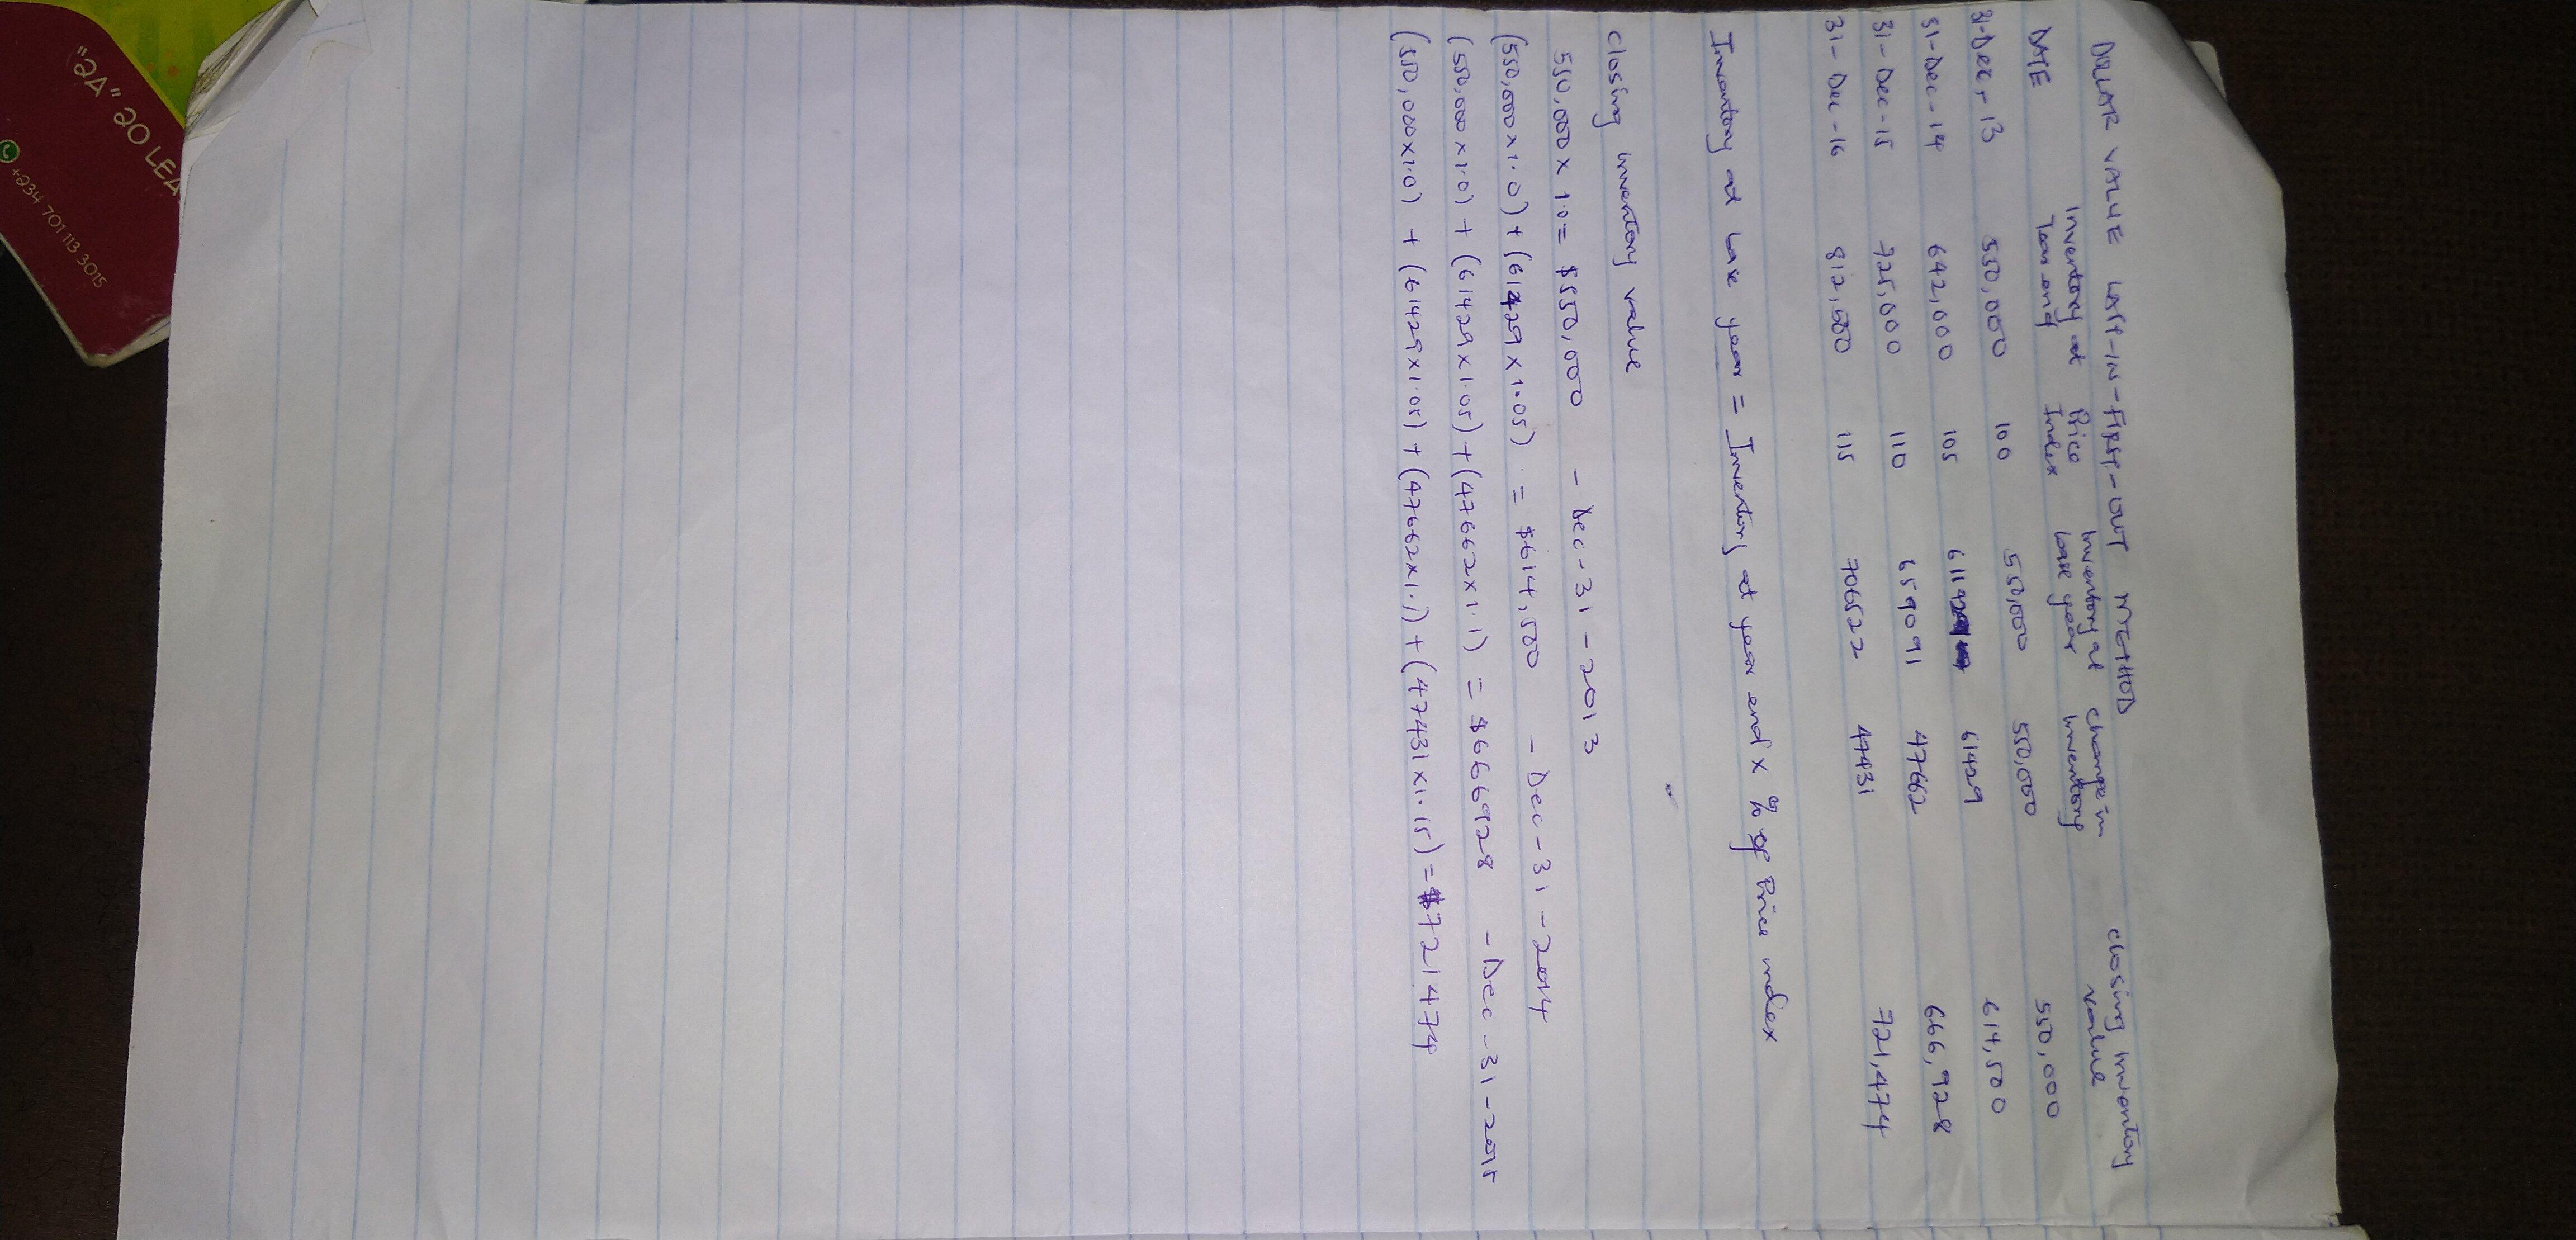 DOLLAR VALUE LAST-IN-FIRST-OUT METHOD
DATE Inventory at Year end Price Index Inventory at base year change in Inventory closing Inventory value
31-Dec-13 550,000 100 550,000 550,000 550,000
31-Dec-14 642,000 105 611429 61429 614,500
31-Dec-15 725,000 110 659091 47662 666,928
31-Dec-16 812,500 115 706522 47431 721,474
Inventory at base year = Inventory at year end x % of Price index
closing inventory value
550,000 x 1.0 = $550,000 - Dec-31-2013
(550,000x1.0) + (61429x1.05) = $614,500 - Dec-31-2014
(550,000x1.0) + (61429x1.05) + (47662x1.1) = $666928 - Dec-31-2015
(550,000x1.0) + (61429x1.05) + (47662x1.1) + (47431x1.15) = $721474
"2A" 20 LEA
+234 701 113 3015